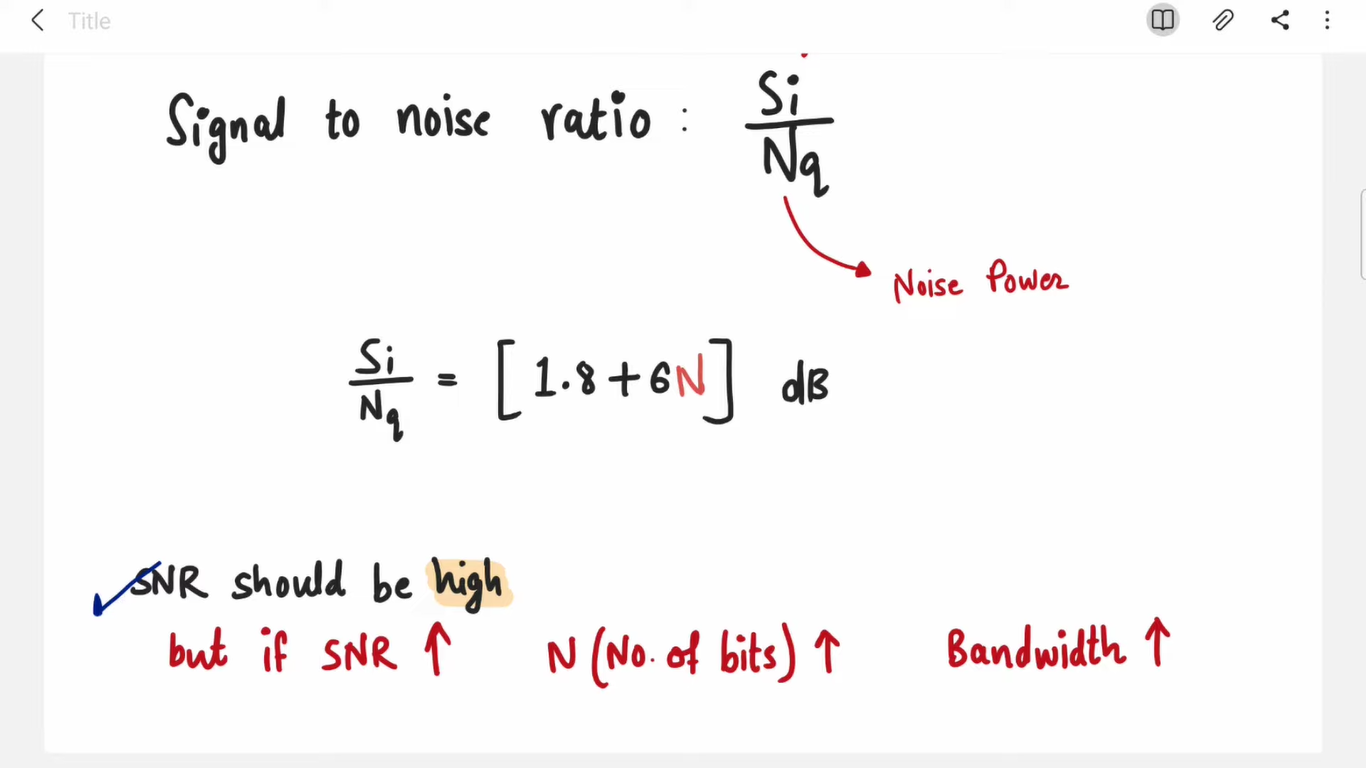 Title
Signal to noise ratio : Si/Nq
Noise Power
Si/Nq = [1.8 + 6N] dB
SNR should be high
but if SNR ↑ N (No. of bits) ↑ Bandwidth ↑